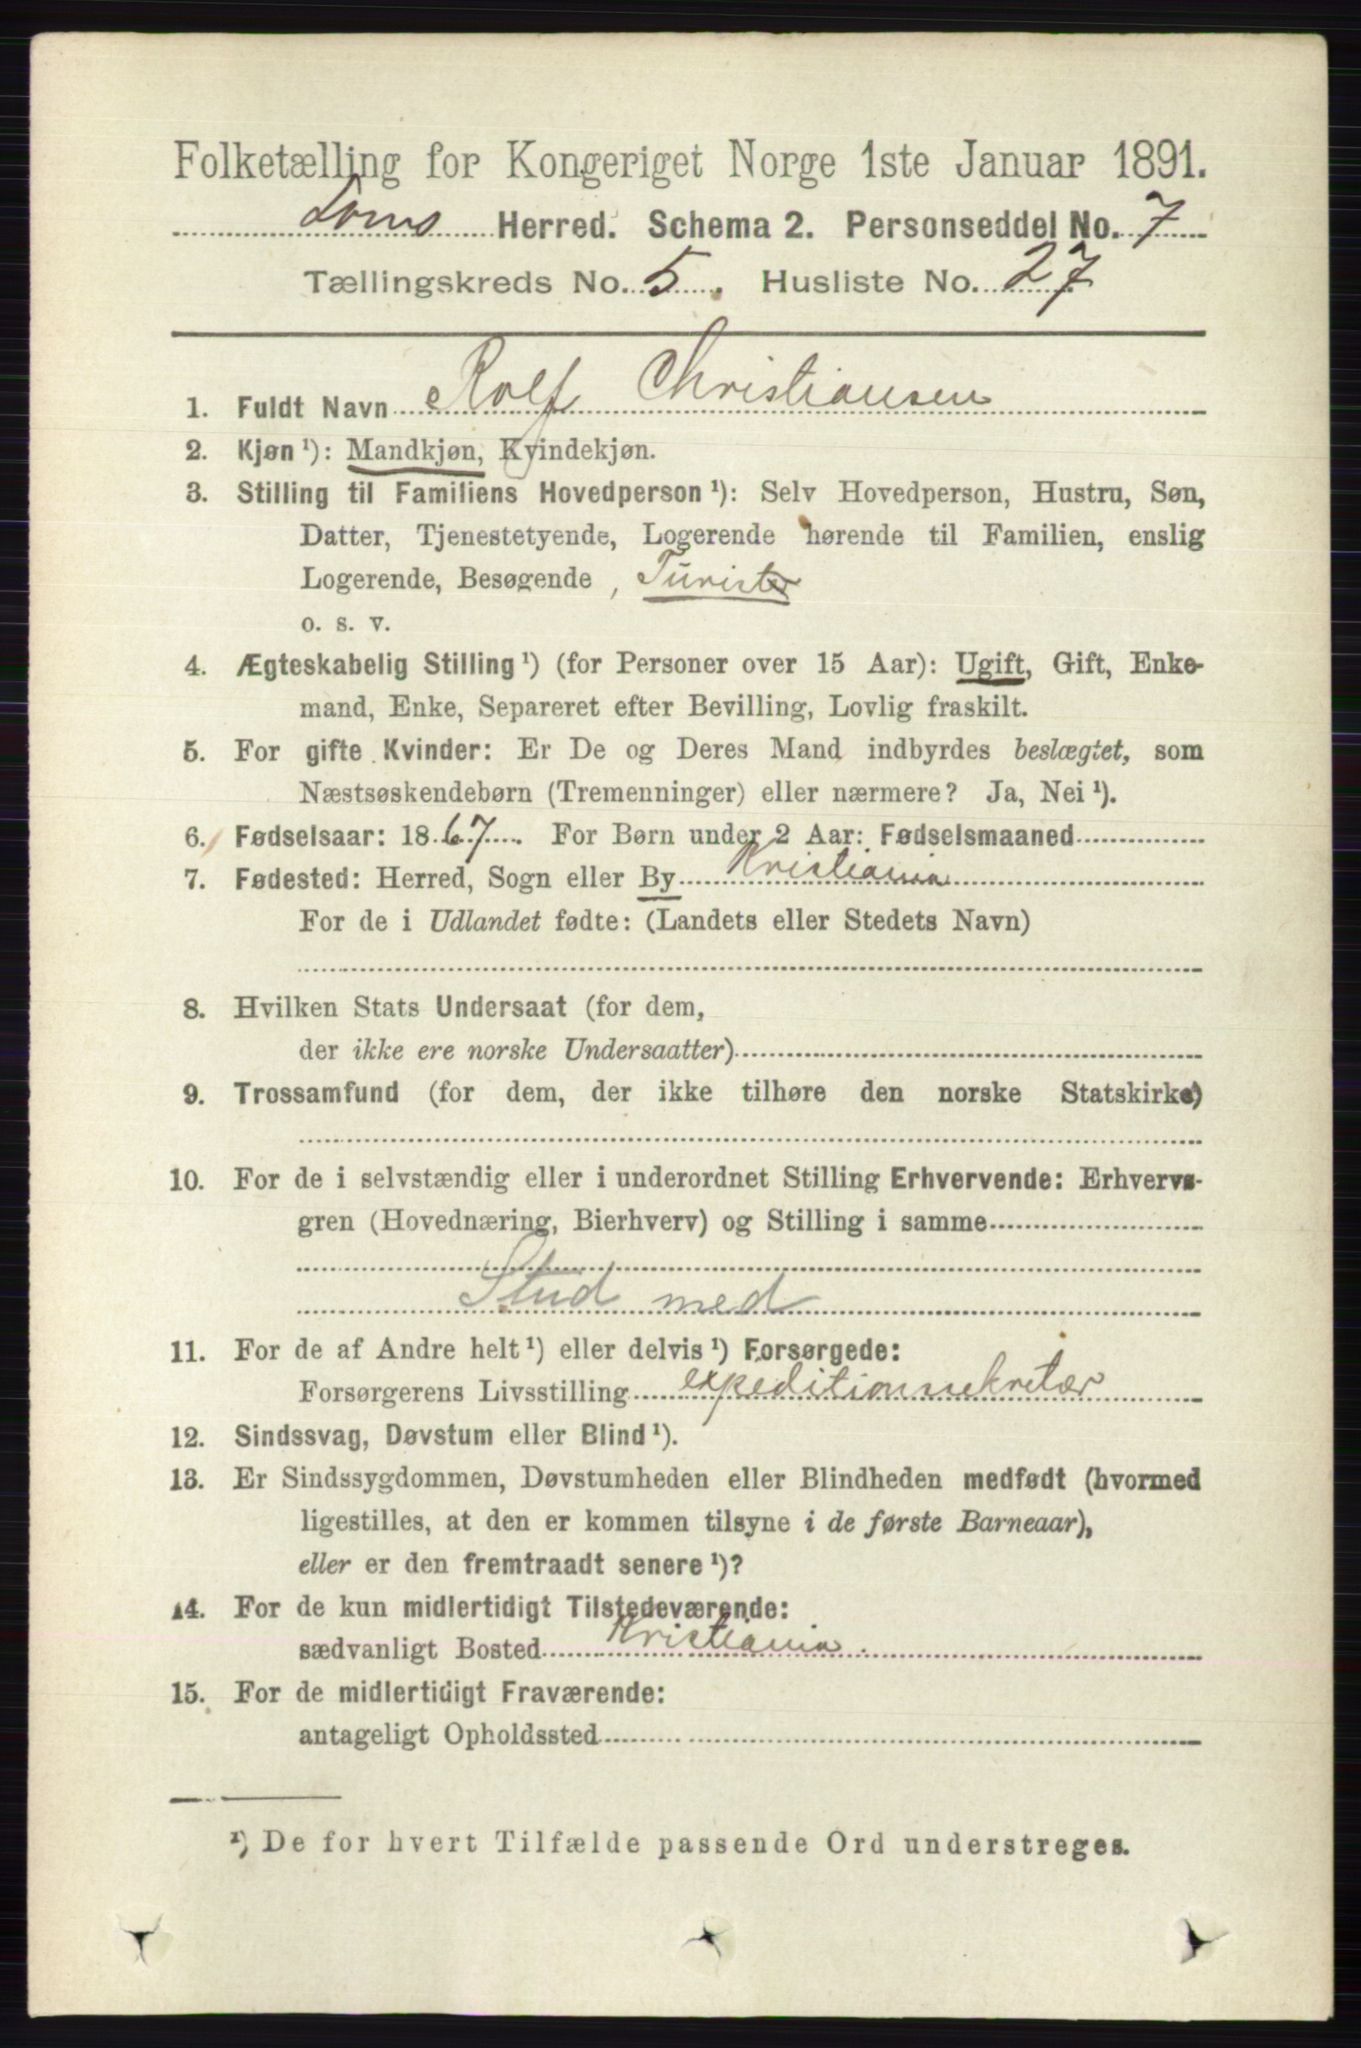 Folketælling for Kongeriget Norge 1ste Januar 1891.
Loms Herred. Schema 2. Personseddel No. 7
Tællingskreds No. 5. Husliste No. 27
1. Fuldt Navn Rolf Christiansen
2. Kjøn ¹): Mandkjøn, Kvindekjøn.
3. Stilling til Familiens Hovedperson ¹): Selv Hovedperson, Hustru, Søn,
Datter, Tjenestetyende, Logerende hørende til Familien, enslig
Logerende, Besøgende, Turister
o. s. v.
4. Ægteskabelig Stilling ¹) (for Personer over 15 Aar): Ugift, Gift, Enke-
mand, Enke, Separeret efter Bevilling, Lovlig fraskilt.
5. For gifte Kvinder: Er De og Deres Mand indbyrdes beslægtet, som
Næstsøskendebørn (Tremenninger) eller nærmere? Ja, Nei ¹).
6. Fødselsaar: 1867. For Børn under 2 Aar: Fødselsmaaned
7. Fødested: Herred, Sogn eller By Kristiania
For de i Udlandet fødte: (Landets eller Stedets Navn)
8. Hvilken Stats Undersaat (for dem,
der ikke ere norske Undersaatter)
9. Trossamfund (for dem, der ikke tilhøre den norske Statskirke)
10. For de i selvstændig eller i underordnet Stilling Erhvervende: Erhvervs-
gren (Hovednæring, Bierhverv) og Stilling i samme
Stud med
11. For de af Andre helt ¹) eller delvis ¹) Forsørgede:
Forsørgerens Livsstilling expeditionssekretær
12. Sindssvag, Døvstum eller Blind ¹).
13. Er Sindssygdommen, Døvstumheden eller Blindheden medfødt (hvormed
ligestilles, at den er kommen tilsyne i de første Barneaar),
eller er den fremtraadt senere ¹)?
14. For de kun midlertidigt Tilstedeværende:
sædvanligt Bosted Kristiania.
15. For de midlertidigt Fraværende:
antageligt Opholdssted
¹) De for hvert Tilfælde passende Ord understreges.